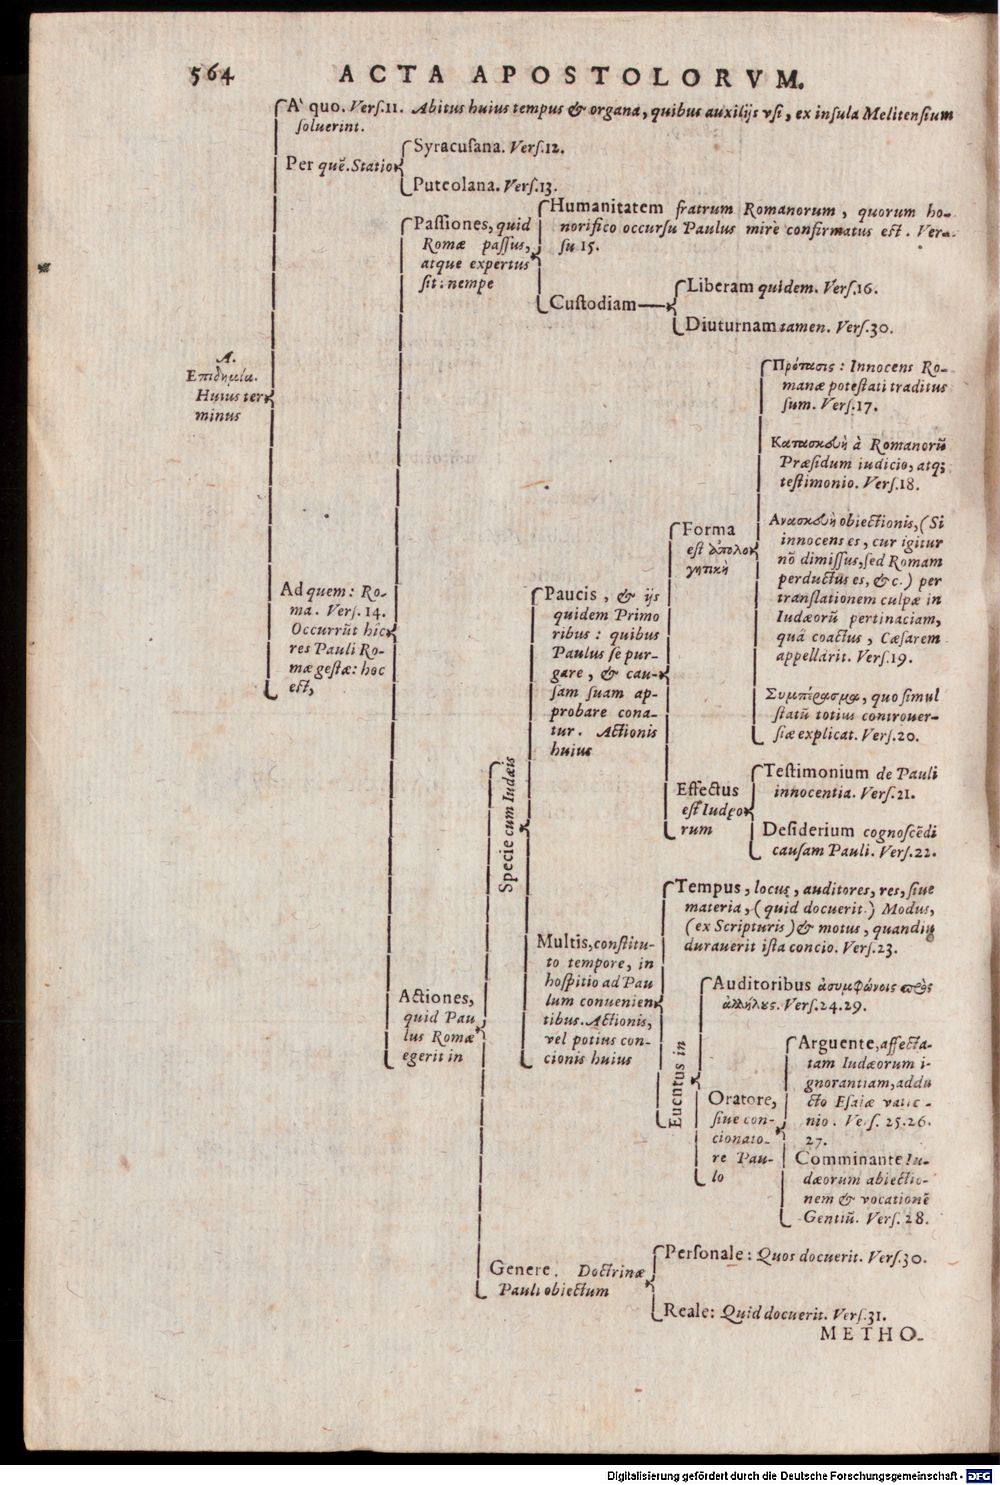 564 ACTA APOSTOLORVM.
A' quo. Verſ.11. Abitus huius tempus & organa, quibus auxilijs vſi, ex inſula Melitenſium
ſoluerint.
Per quẽ. Statio
Syracuſana. Verſ.12.
Puteolana. Verſ.13.
A.
Επιδημία.
Huius ter
minus
Ad quem: Ro-
ma. Verſ. 14.
Occurrũt hîc
res Pauli Ro-
mæ geſtæ: hoc
eſt,
Paſſiones, quid
Romæ paſſus,
atque expertus
ſit: nempe
Humanitatem fratrum Romanorum, quorum ho-
norifico occurſu Paulus mirè confirmatus eſt. Ver-
ſu 15.
Cuſtodiam
Liberam quidem. Verſ.16.
Diuturnam tamen. Verſ.30.
Actiones,
quid Pau
lus Romæ
egerit in
Specie cum Iudæis
Paucis, & ijs
quidem Primo
ribus: quibus
Paulus ſe pur-
gare, & cau-
ſam ſuam ap-
probare cona-
tur. Actionis
huius
Forma
eſt ἀπολο
γητικὴ
Πρότασις: Innocens Ro-
manæ poteſtati traditus
ſum. Verſ.17.
Κατασκευὴ à Romanorũ
Præſidum iudicio, atq;
teſtimonio. Verſ.18.
Ανασκευὴ obiectionis, (Si
innocens es, cur igitur
nõ dimiſſus, ſed Romam
perductus es, &c.) per
tranſlationem culpæ in
Iudæorũ pertinaciam,
quâ coactus, Cæſarem
appellârit. Verſ.19.
Συμπέρασμα, quo ſimul
ſtatũ totius controuer-
ſiæ explicat. Verſ.20.
Effectus
eſt Iudæo
rum
Teſtimonium de Pauli
innocentia. Verſ.21.
Deſiderium cognoſcẽdi
cauſam Pauli. Verſ.22.
Multis, conſtitu-
to tempore, in
hoſpitio ad Pau
lum conuenien
tibus. Actionis,
vel potius con-
cionis huius
Tempus, locus, auditores, res, ſiue
materia, (quid docuerit.) Modus,
(ex Scripturis) & motus, quandiu
durauerit iſta concio. Verſ.23.
Euentus in
Auditoribus ἀσυμφώνοις πρὸς
ἀλλήλους. Verſ.24.29.
Oratore,
ſiue con-
cionato-
re Pau-
lo
Arguente, affecta-
tam Iudæorum i-
gnorantiam, addu
cto Eſaiæ vatic-
nio. Verſ. 25.26.
27.
Comminante Iu-
dæorum abiectio-
nem & vocationẽ
Gentiũ. Verſ. 28.
Genere. Doctrinæ
Pauli obiectum
Perſonale: Quos docuerit. Verſ.30.
Reale: Quid docuerit. Verſ.31.
METHO-
Digitalisierung gefördert durch die Deutsche Forschungsgemeinschaft - DFG